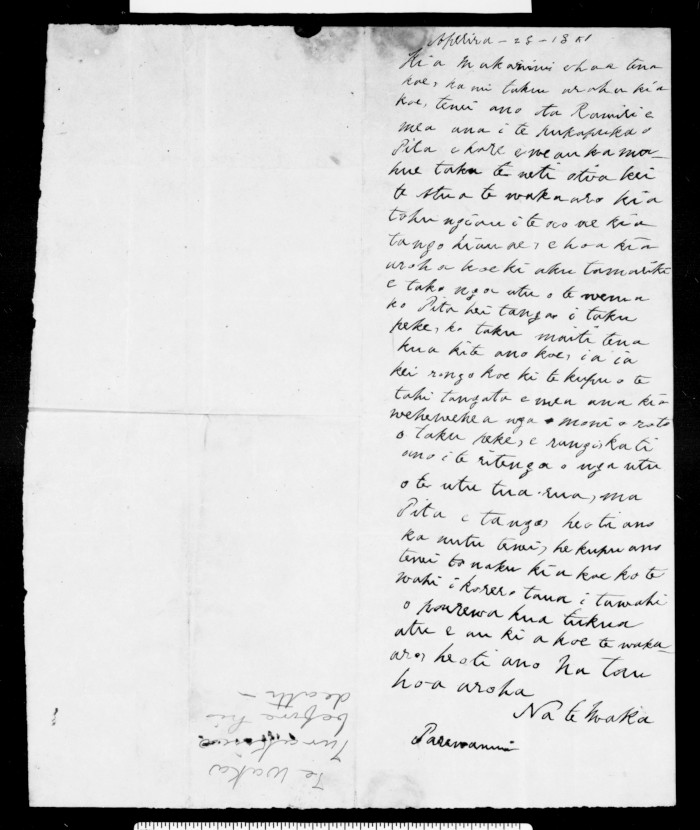 Aperira - 28 - 18
Kia Makarini e hoa tena
koe, ka nui taku aroha kia
koe, tenei ano ta Ramiri e
mea ana i te pukapuka o
Pita e kore e au ka ma-
hue taku te otira kei
te Atua te wakaaro kia
tohu ngia au i te ao nei kia
tango hia nei, e hoa kia
aroha koe ki aku tamariki
e toko nga utu o te wenua
ko Pita hei tango i taku
peke, ko taku moiti tena
kua kite ano koe, ia ia
kei rongo koe ki te kupu o te
tahi tangata e mea ana kia
wehewehea nga moni o roto
o taku peke, e rangi, kati
ano i te ritenga o nga utu
o te utu tua-rua, ma
Pita e tango, heoti ano
ka mutu tenei, he kupu ano
tenei naku kia koe ko te
wahi i korero taua i tawahi
o pourewa kua tukua
atu e au ki a koe te waka-
aro, heoti ano Na tou
hoa aroha
Na te Waka
Parewanui
Te Waka
before his
death -